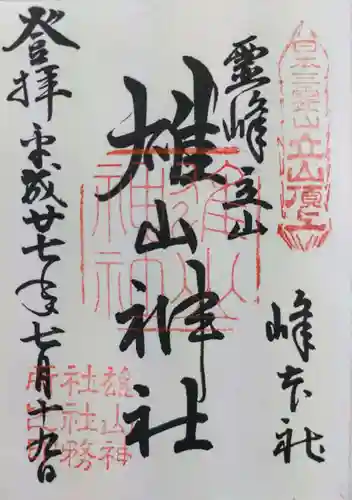 日本三霊山立山頂上
霊峰立山
峰本社
雄山神社
登拝
平成廿七年七月十九日
雄山神社
雄山神
社社務
所印